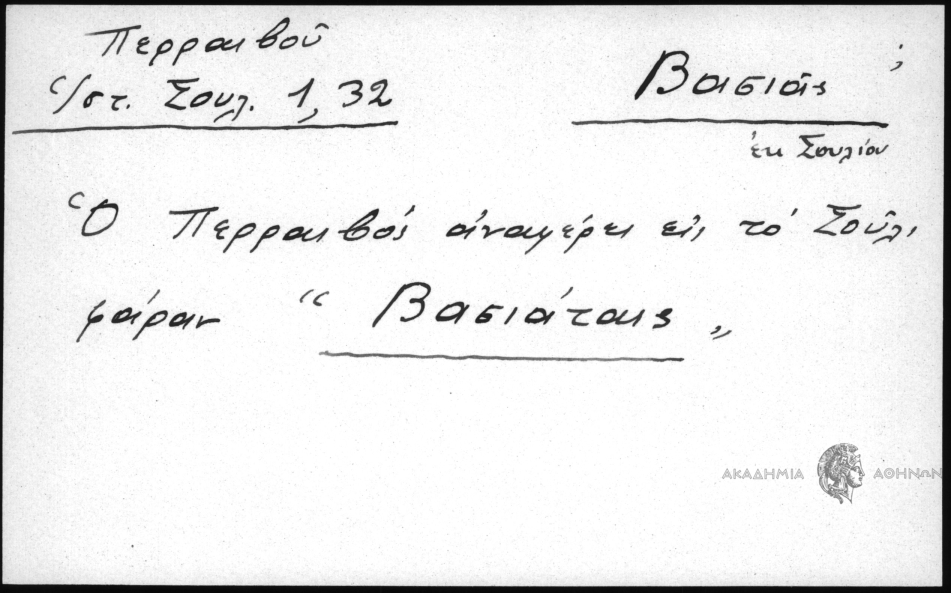 Περραιβοῦ
Ἱστ. Σουλ. 1, 32
Βασιᾶς ;
ἐκ Σουλίου
Ὁ Περραιβός ἀναφέρει εἰς τό Σοῦλι
φάραν “Βασιάταις„
ΑΚΑΔΗΜΙΑ ΑΘΗΝΩΝ